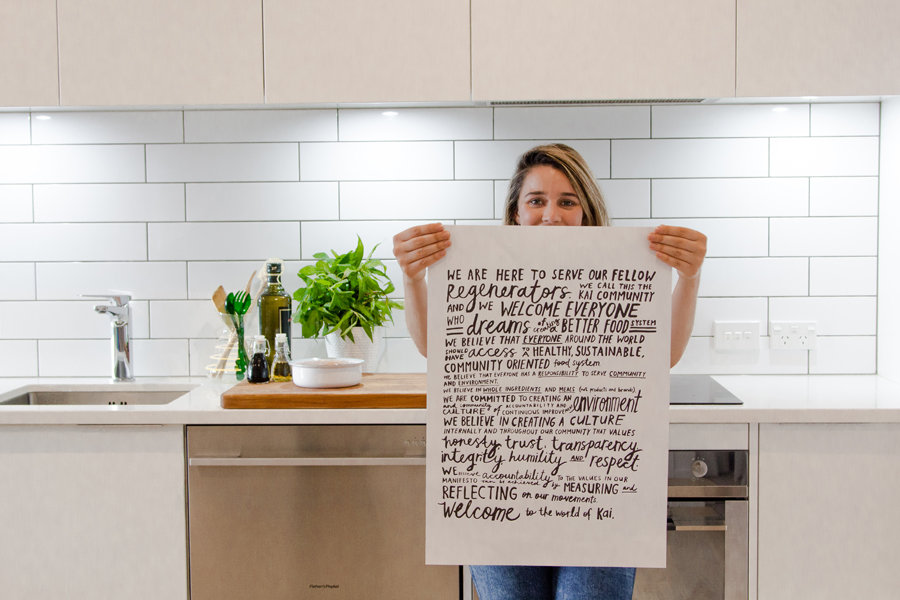 WE ARE HERE TO SERVE OUR FELLOW
regenerators. WE CALL THIS THE KAI COMMUNITY
AND WE WELCOME EVERYONE
WHO dreams of BETTER FOOD SYSTEM
WE BELIEVE THAT EVERYONE AROUND THE WORLD
SHOULD HAVE access to HEALTHY, SUSTAINABLE,
COMMUNITY ORIENTED food system
WE BELIEVE THAT EVERYONE HAS A RESPONSIBILITY TO SERVE COMMUNITY
AND ENVIRONMENT.
WE BELIEVE IN WHOLE INGREDIENTS AND MEALS (not products and brands)
WE ARE COMMITTED TO CREATING AN environment
and community OF ACCOUNTABILITY AND
CULTURE of CONTINUOUS IMPROVEMENT
WE BELIEVE IN CREATING A CULTURE
INTERNALLY AND THROUGHOUT OUR COMMUNITY THAT VALUES
honesty, trust, transparency
integrity humility AND respect.
WE accountability TO THE VALUES IN OUR
MANIFESTO can be achieved by MEASURING and
REFLECTING on our movements.
Welcome to the world of Kai.
Fisher & Paykel